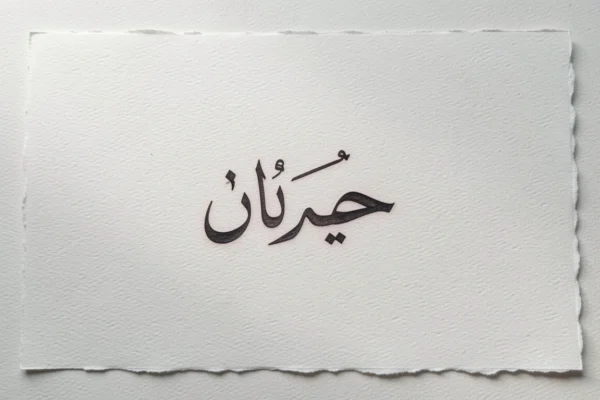 حيرئان